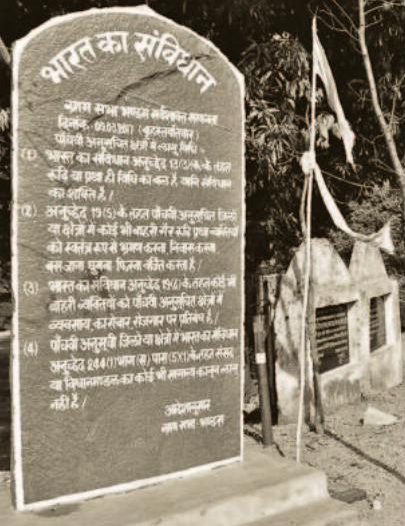 भारत का संविधान
ग्राम सभा भण्डरा सर्वशक्ति सम्पन्न
दिनांक- 09.03.2017 (बृहस्पतिवार)
पाँचवी अनुसूचित क्षेत्रों में लागू विधि-
(1) भारत का संविधान अनुच्छेद 13(3) क. के तहत
रूढ़ि या प्रथा ही विधि का बल है, यानि संविधान
की शक्ति है।
(2) अनुच्छेद 19(5) के तहत पाँचवी अनुसूचित जिलों
या क्षेत्रों में कोई भी बाहरी गैर रूढ़ि प्रथा व्यक्तियों
को स्वतंत्र रूप से भ्रमण करना, निवास करना,
बस जाना, घुमना फिरना वर्जित करता है।
(3) भारत का संविधान अनुच्छेद 19(6) के तहत कोई भी
बाहरी व्यक्तियों को पाँचवी अनुसूचित क्षेत्रों में
व्यवसाय, कारोबार, रोजगार पर प्रतिबंध है।
(4) पाँचवी अनुसूची जिलों या क्षेत्रों में भारत का संविधान
अनुच्छेद 244(1) भाग (ख) पारा (5)(1) के तहत संसद
या विधानमण्डल का कोई भी सामान्य कानून लागू
नहीं है।
आदेशानुसार
ग्राम सभा- भण्डरा